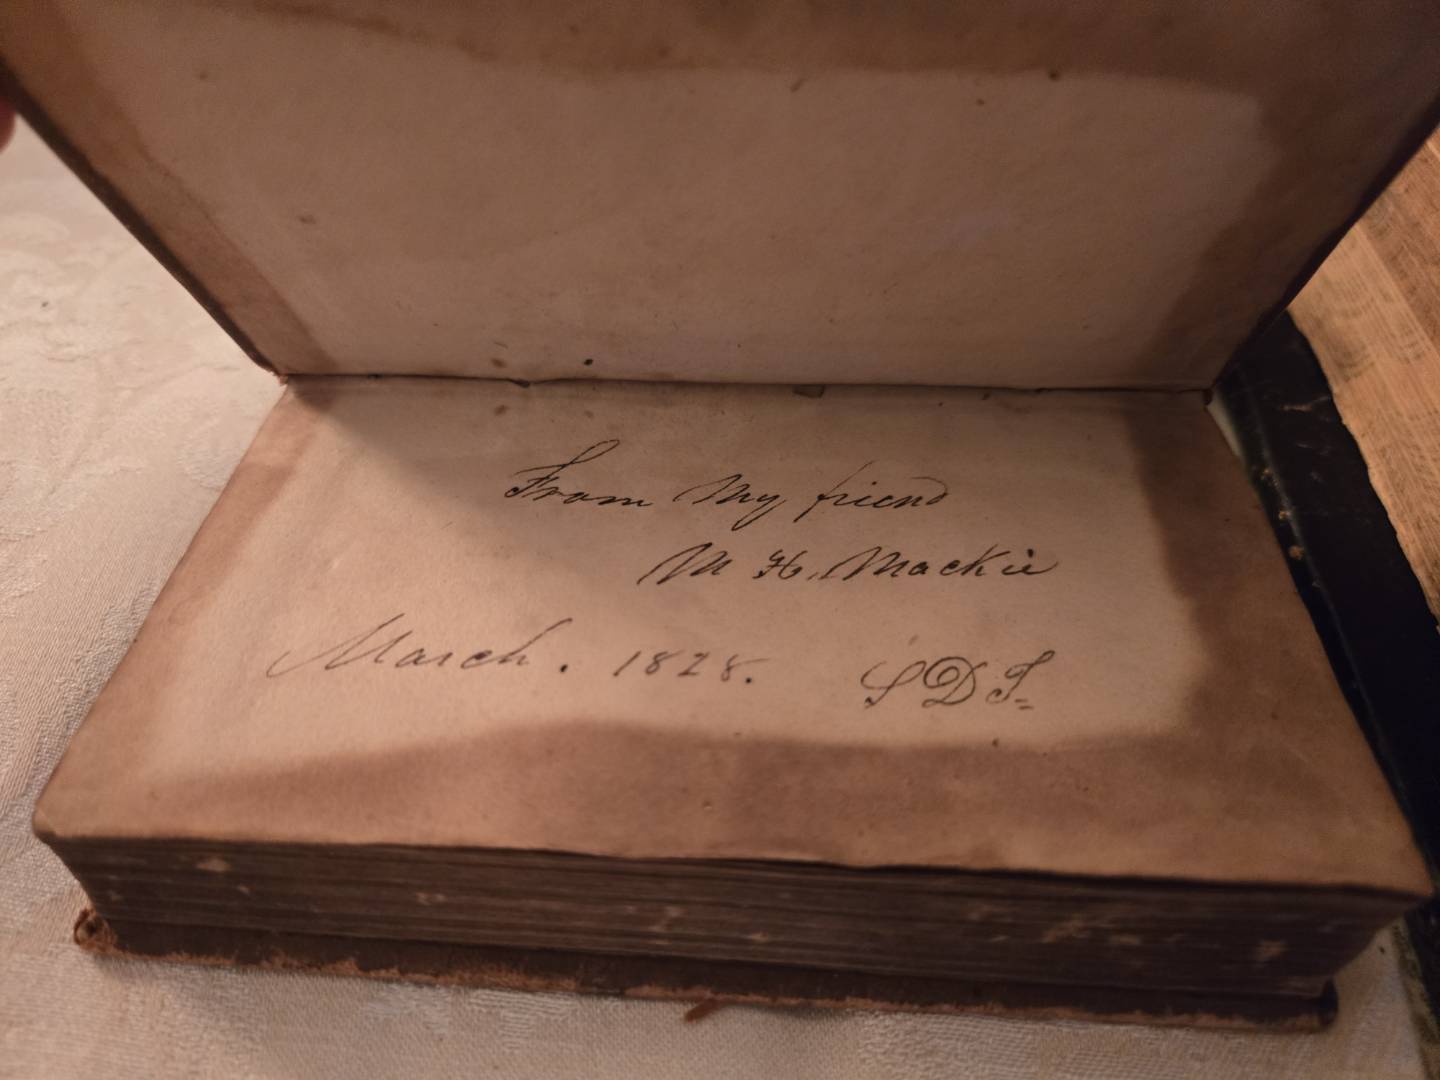 From My friend
M H. Mackie
March. 1828. S D S